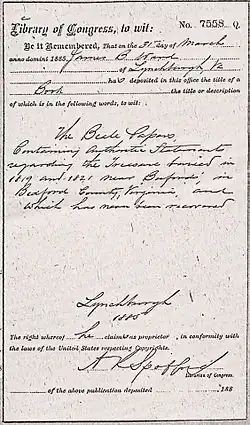 Library of Congress, to wit:
No. 7558 Q.
Be it Remembered, That on the 31 day of March
anno domini 1885, James B. Ward
of Lynchburgh, Va
has deposited in this office the title of a
Book the title or description
of which is in the following words, to wit:
The Beale Papers
Containing Authentic Statements
regarding the Treasure buried in
1819 and 1821 near Bufords in
Bedford County, Virginia, and
which has never been recovered
Lynchburgh
1885
The right whereof he claims as proprietor, in conformity with
the laws of the United States respecting Copyrights.
A R Spofford
Librarian of Congress.
of the above publication deposited 188